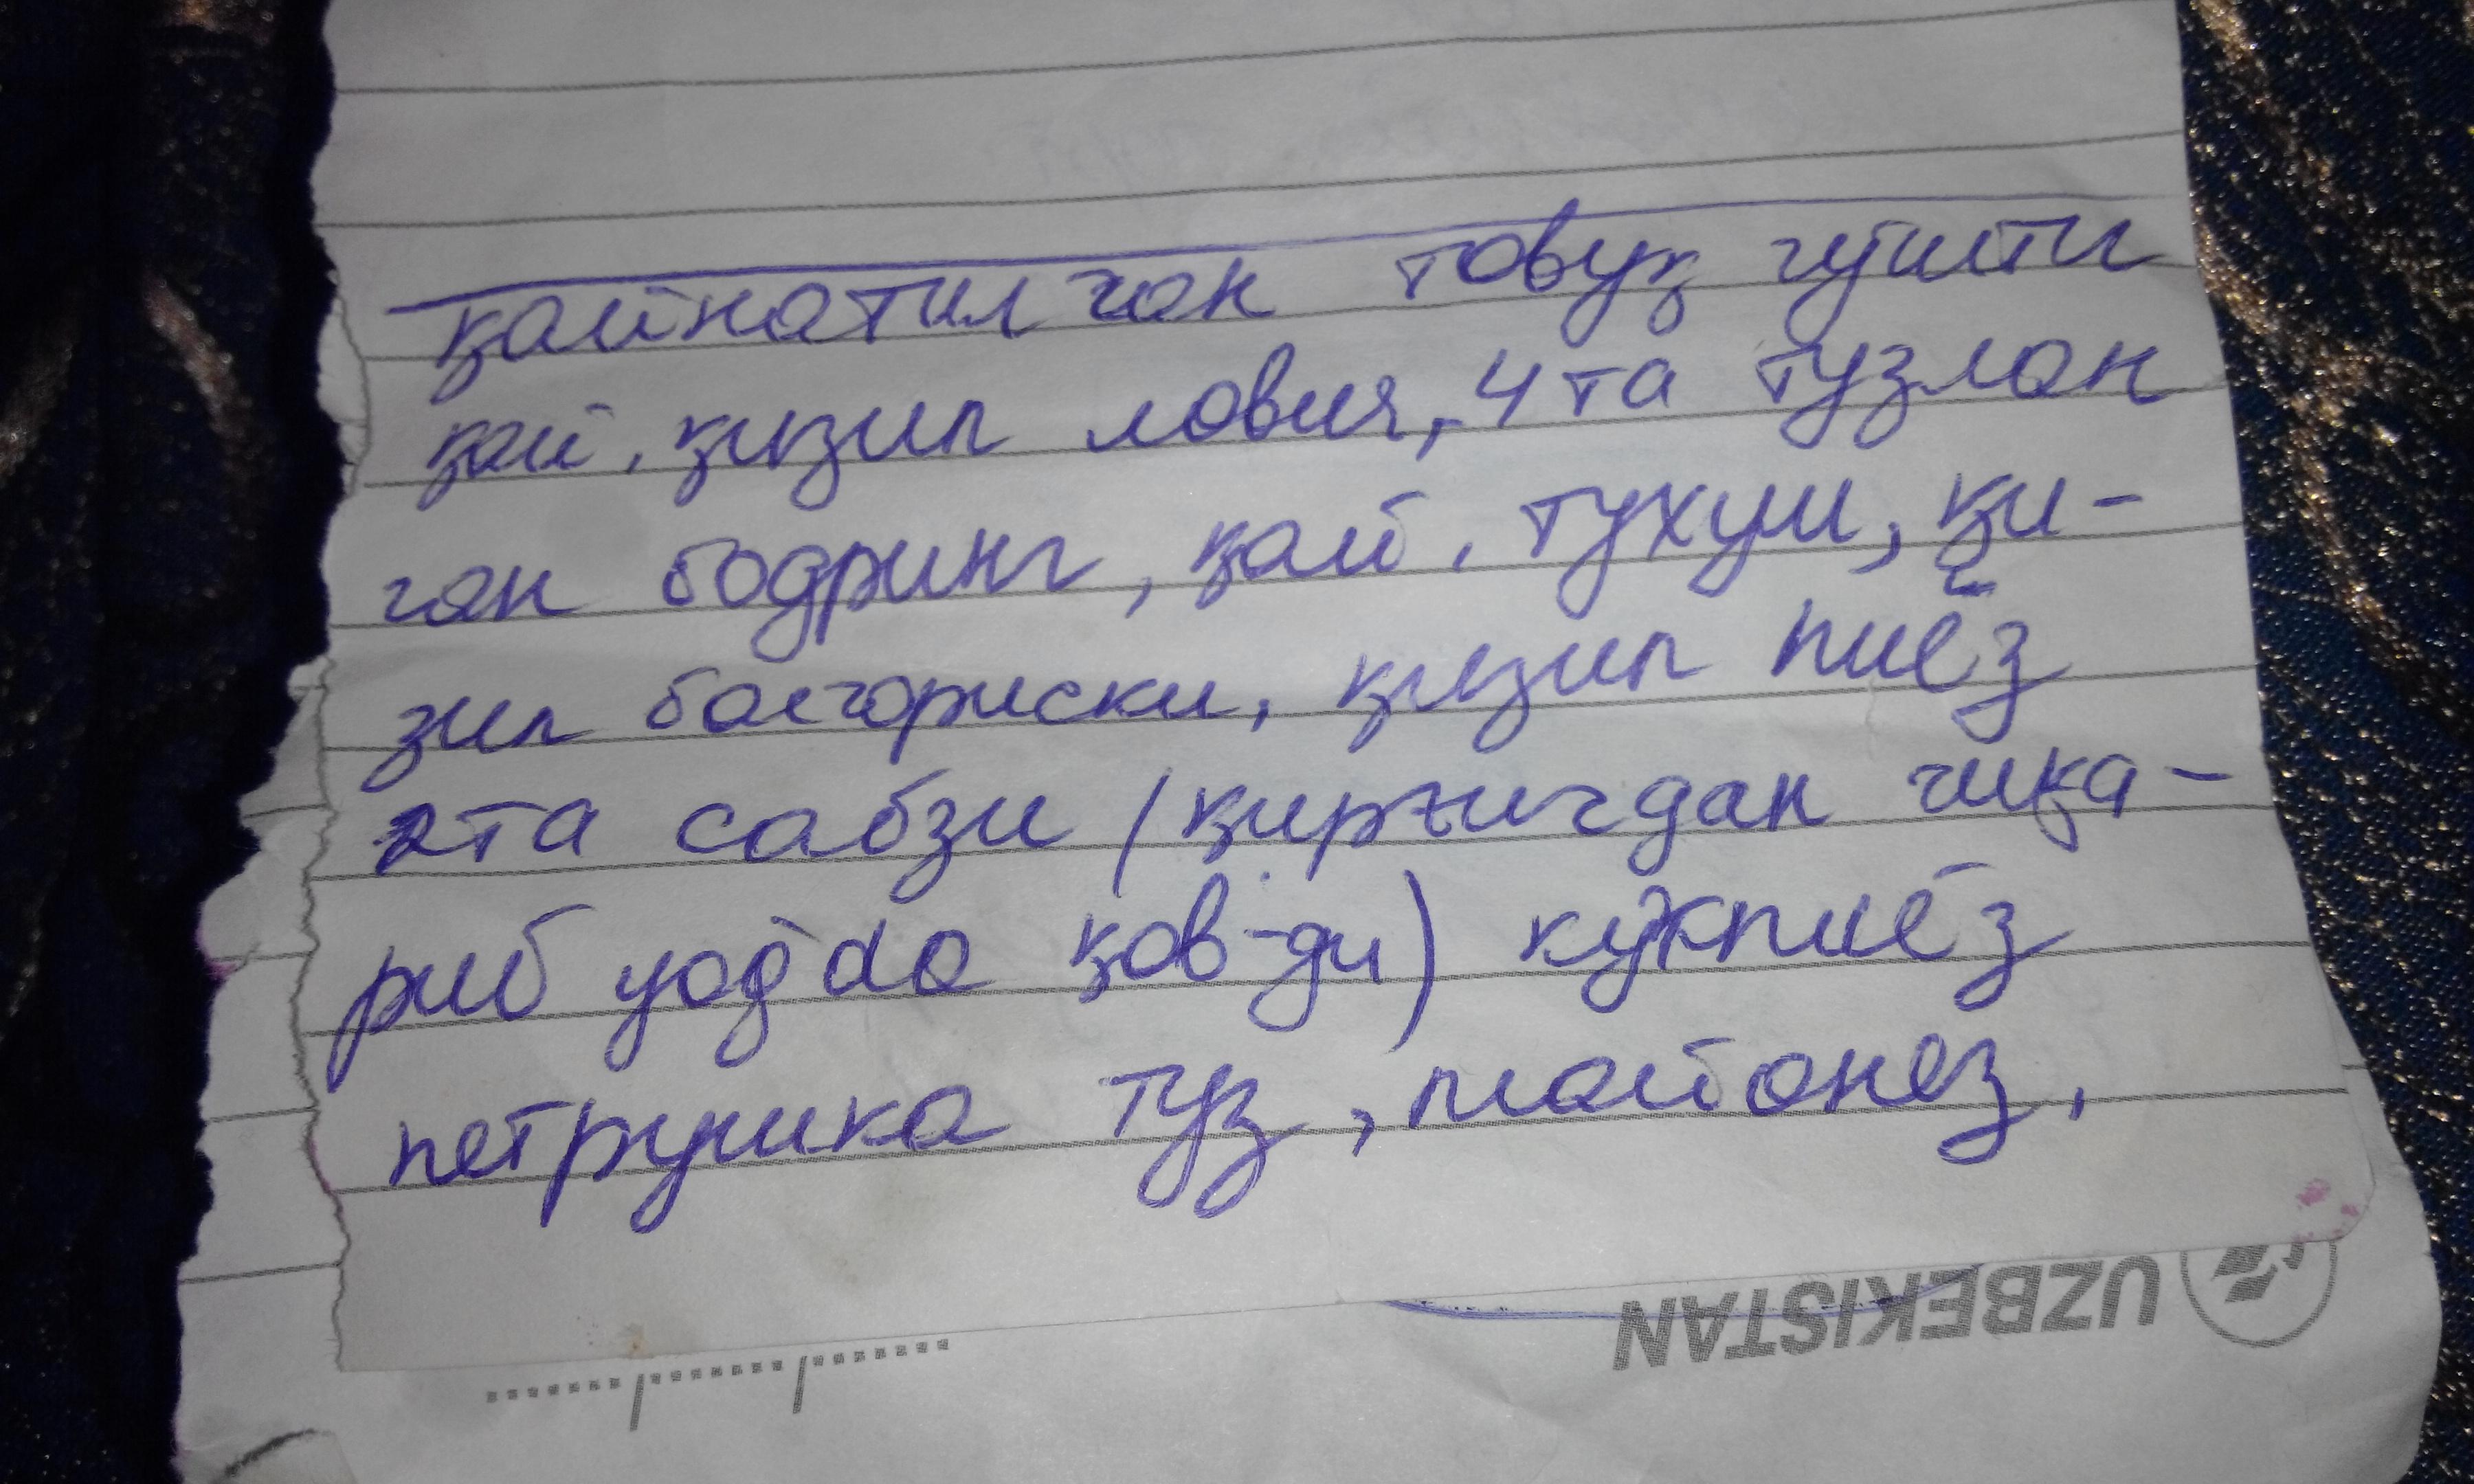 қайнатилган товуқ гўшти
қай. қизил ловия, 4 та тузлан
ган бодринг, қай. тухум, қи-
зил болгариски, қизил пиёз
2та сабзи (қирғичдан чиқа-
риб yog'da қов-ди) кўкпиёз
петрушка туз, майонез,
UZBEKISTAN